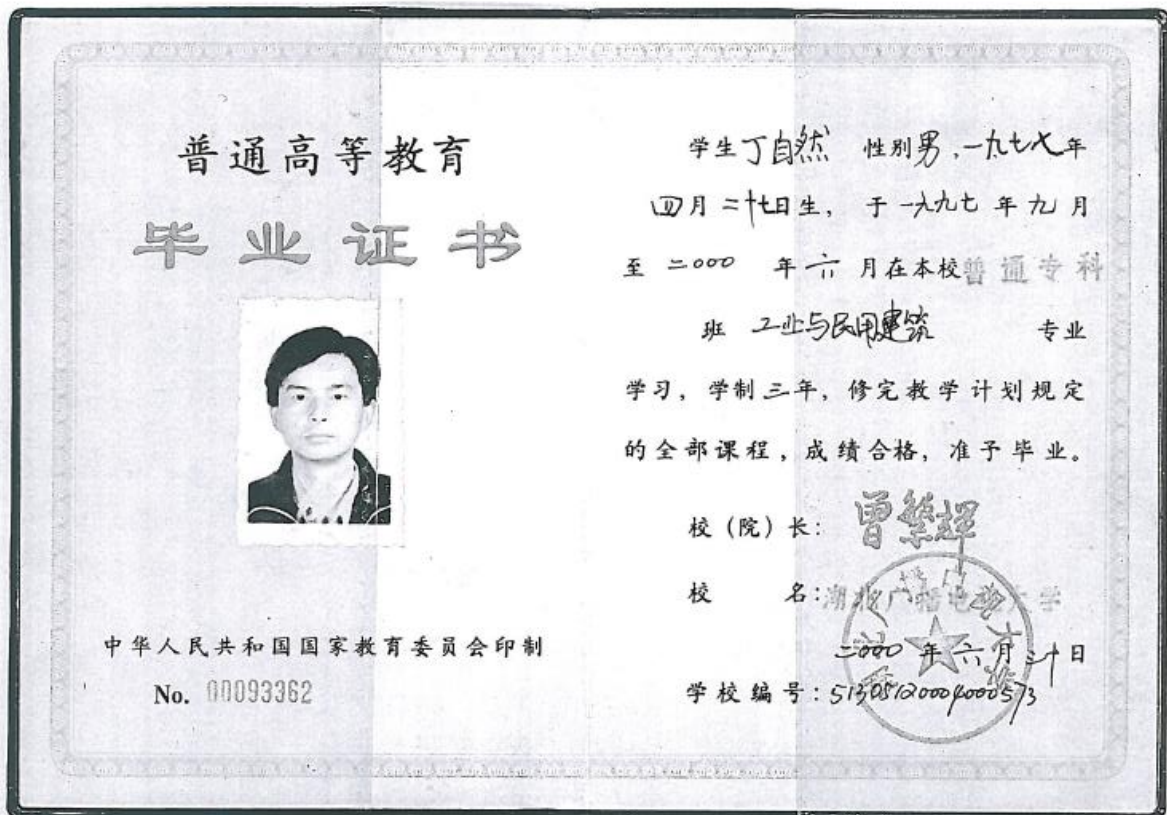 普通高等教育
毕业证书
中华人民共和国国家教育委员会印制
No. 00093362
学生丁自然 性别男,一九七七年
四月二十七日生,于一九九七年九月
至二000 年六月在本校普通专科
班 工业与民用建筑 专业
学习,学制三年,修完教学计划规定
的全部课程,成绩合格,准予毕业。
校(院)长:曾繁辉
校 名:湖北广播电视大学
二000年六月三十日
学校编号: